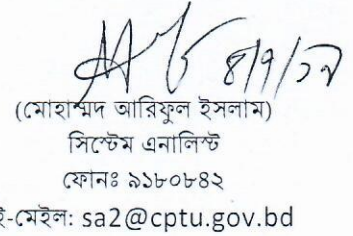 ৪/৭/১৯
(মোহাম্মদ আরিফুল ইসলাম)
সিস্টেম এনালিস্ট
ফোনঃ ৯১৮০৮৪২
ই-মেইল: sa2@cptu.gov.bd